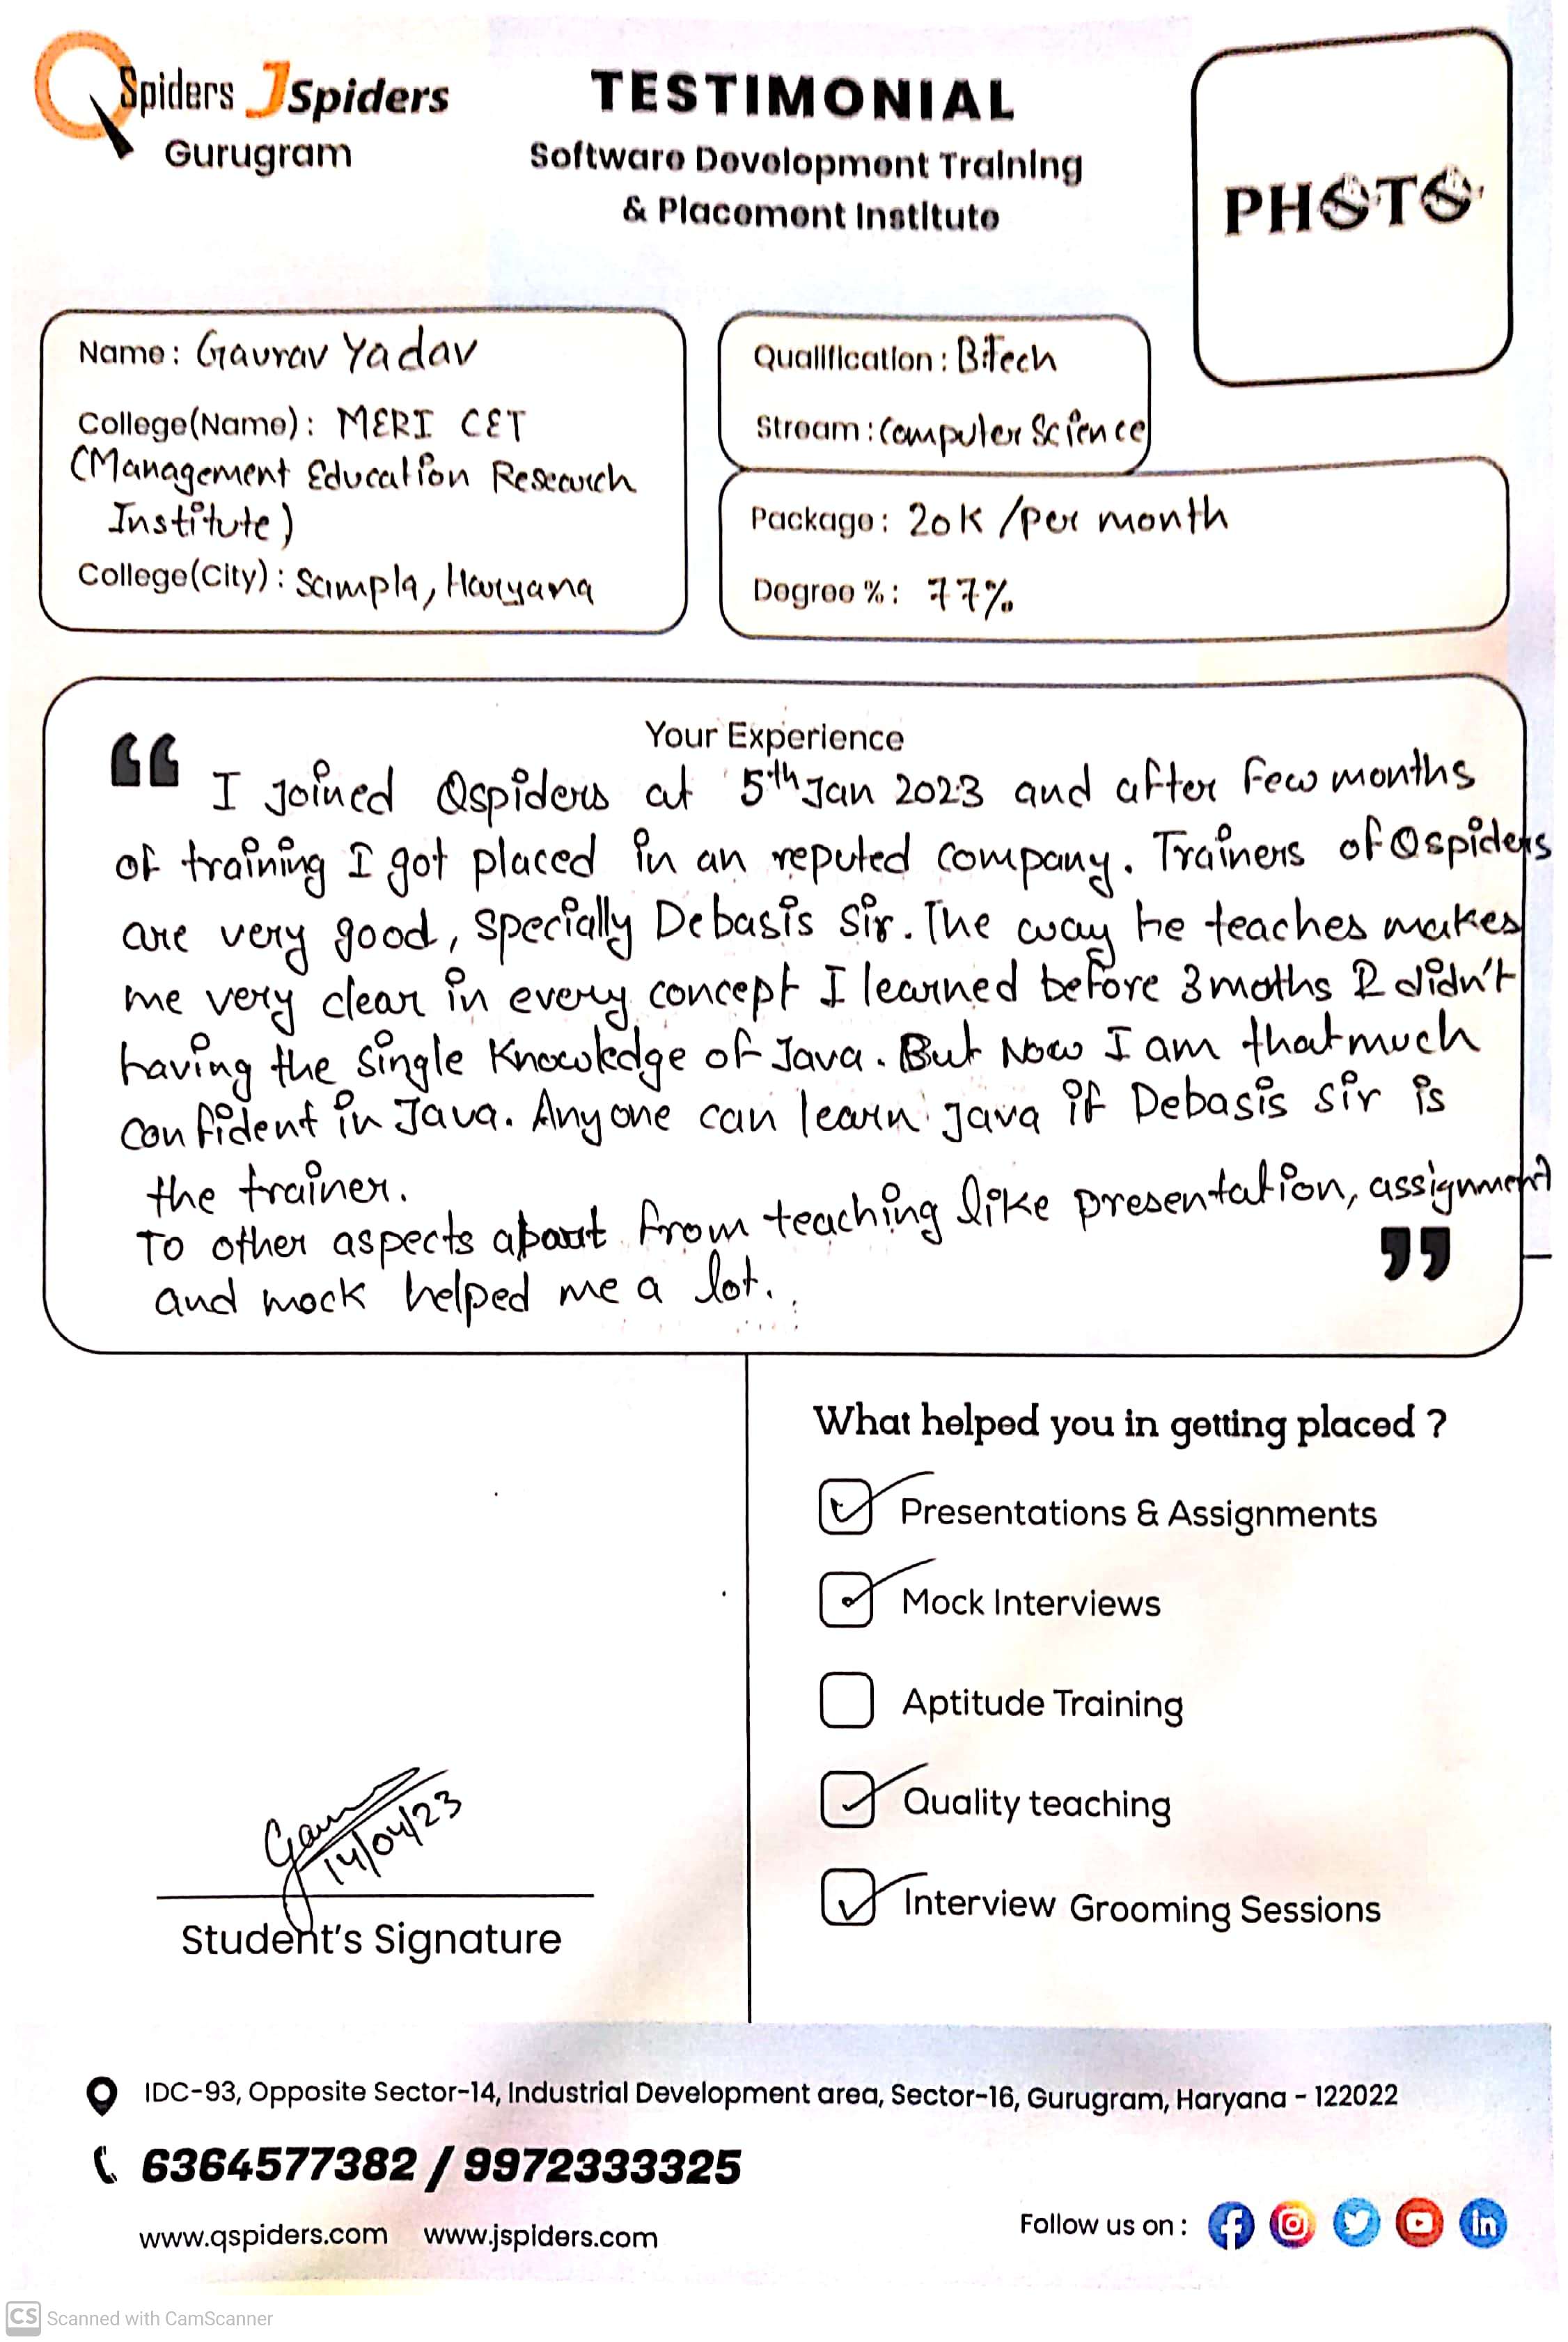 QSpiders JSpiders
Gurugram
TESTIMONIAL
Software Development Training
& Placement Institute
PHOTO
Name: Gaurav Yadav
College(Name): MERI CET
(Management Education Research
Institute)
College(City): Sampla, Haryana
Qualification: B.Tech
Stream: Computer Science
Package: 20K /per month
Degree %: 77%
Your Experience
I Joined Qspiders at 5th Jan 2023 and after few months
of training I got placed in an reputed company. Trainers of Qspiders
are very good, specially Debasis Sir. The way he teaches makes
me very clear in every concept I learned before 3 moths I didn't
having the single Knowledge of Java. But Now I am that much
confident in Java. Anyone can learn java if Debasis sir is
the trainer.
To other aspects apart from teaching like presentation, assignment
and mock helped me a lot.
What helped you in getting placed ?
Presentations & Assignments
Mock Interviews
Aptitude Training
Quality teaching
Interview Grooming Sessions
14/04/23
Student's Signature
IDC-93, Opposite Sector-14, Industrial Development area, Sector-16, Gurugram, Haryana - 122022
6364577382 / 9972333325
www.qspiders.com www.jspiders.com
Follow us on :
CS Scanned with CamScanner